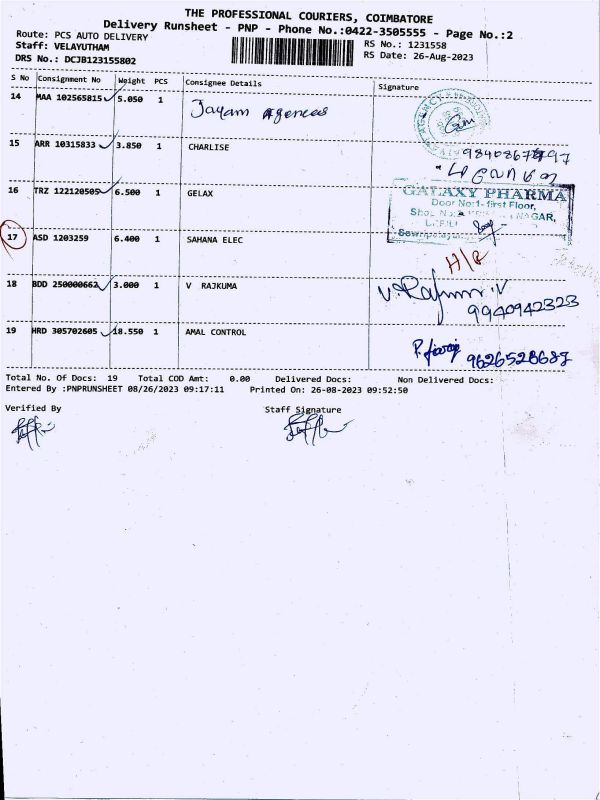 THE PROFESSIONAL COURIERS, COIMBATORE
Delivery Runsheet - PNP - Phone No.:0422-3505555 - Page No.:2
Route: PCS AUTO DELIVERY
Staff: VELAYUTHAM
DRS No.: DCJB123155802
RS No.: 1231558
RS Date: 26-Aug-2023
S No Consignment No Weight PCS Consignee Details Signature
14 MAA 102565815 5.050 1 Jayam Agencies
15 ARR 10315833 3.850 1 CHARLISE
16 TRZ 122120505 6.500 1 GELAX
GALAXY PHARMA
Door No:1- first Floor,
NAGAR,
17 ASD 1203259 6.400 1 SAHANA ELEC
18 BDD 250000662 3.000 1 V RAJKUMA
V. Rajkumar.V
9940942323
19 HRD 305702605 18.550 1 AMAL CONTROL
9626528687
Total No. Of Docs: 19 Total COD Amt: 0.00 Delivered Docs: Non Delivered Docs:
Entered By :PNPRUNSHEET 08/26/2023 09:17:11 Printed On: 26-08-2023 09:52:50
Verified By Staff Signature